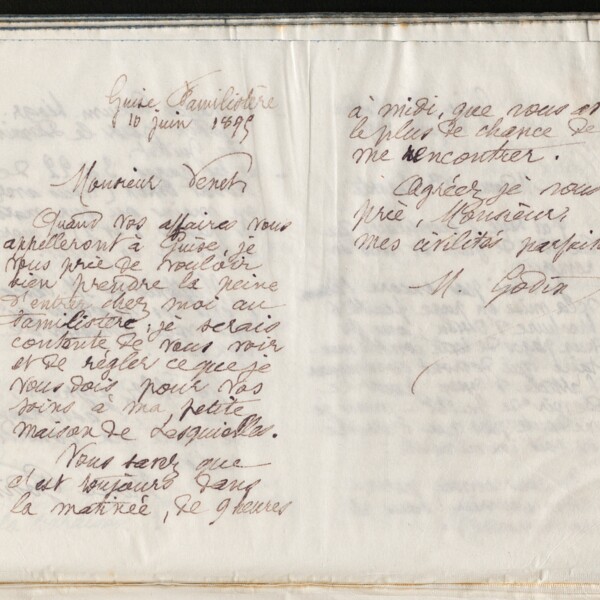 Guise Familistère
10 juin 1895
Monsieur Venet
Quand vos affaires vous
appelleront à Guise, je
vous prie de vouloir
bien prendre la peine
d'entrer chez moi au
Familistère; je serais
contente de vous voir
et de régler ce que je
vous dois pour vos
soins à ma petite
maison de Lesquielles.
Vous savez que
c'est toujours dans
la matinée, de 9 heures
à midi, que vous
le plus de chance de
me rencontrer.
Agréez je vous
prie, Monsieur,
mes civilités parfait
M. Godin